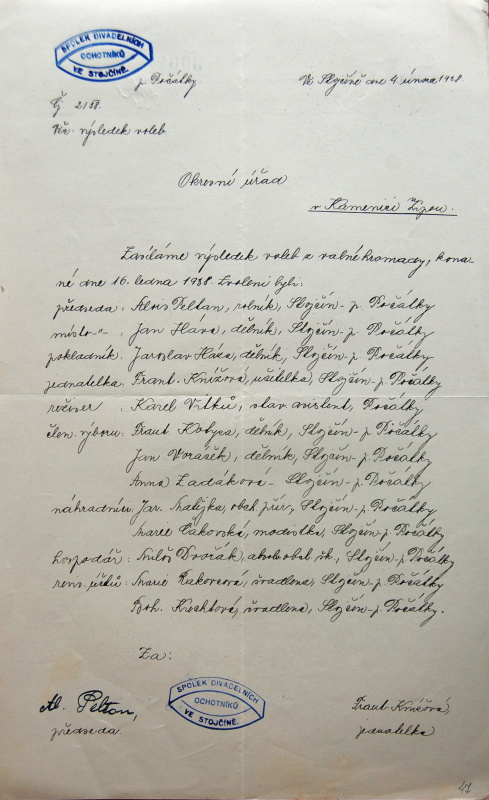 SPOLEK DIVADELNÍCH
OCHOTNÍKŮ
VE STOJČÍNĚ.
p. Počátky
Ve Stojčíně dne 4. února 1938.
Čj. 2/38.
Věc: výsledek voleb.
Okresní úřad
v Kamenici n/Lipou.
Zasíláme výsledek voleb z valné hromady, kona-
né dne 16. ledna 1938. Zvoleni byli:
předseda: Alois Peltan, rolník, Stojčín - p. Počátky
místo-"- : Jan Hava, dělník, Stojčín - p. Počátky
pokladník: Jaroslav Háva, dělník, Stojčín - p. Počátky
jednatelka: Frant. Knížová, učitelka, Stojčín - p. Počátky
režiser : Karel Vítků, stav. asistent, Počátky
člen. výboru: Frant. dělník, Stojčín - p. Počátky
Jan Voráček, dělník, Stojčín - p. Počátky
Anna Zadáková - Stojčín - p. Počátky
náhradníci: Jar. Matějka, Stojčín - p. Počátky
modistka, Stojčín - p. Počátky
hospodář: Miloš Dvořák, Stojčín - p. Počátky
rev. účtů: Marie švadlena, Stojčín - p. Počátky
Boh. švadlena, Stojčín - p. Počátky.
Za:
Al. Peltan,
předseda.
SPOLEK DIVADELNÍCH
OCHOTNÍKŮ
VE STOJČÍNĚ.
Frant. Knížová,
jednatelka
47